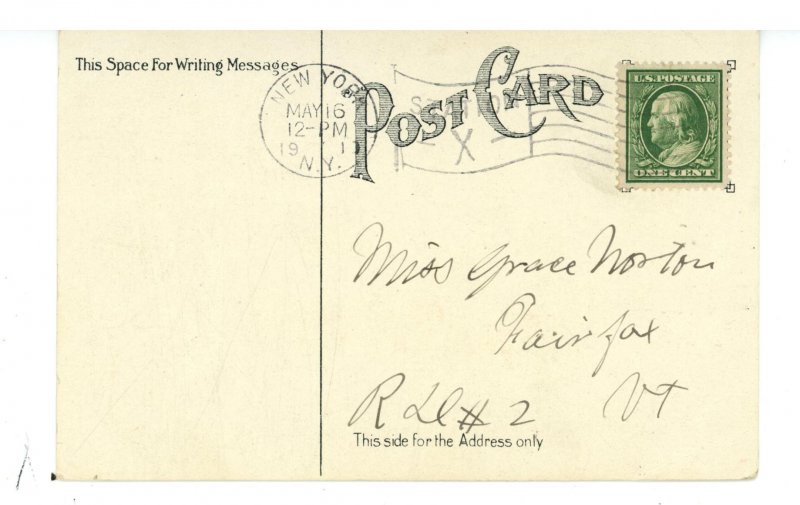 This Space For Writing Messages
POST CARD
NEW YORK
MAY 16
12-PM
N.Y.
STATION
X
U.S. POSTAGE
ONE CENT
Miss Grace Norton
Fairfax
R D # 2 Vt
This side for the Address only